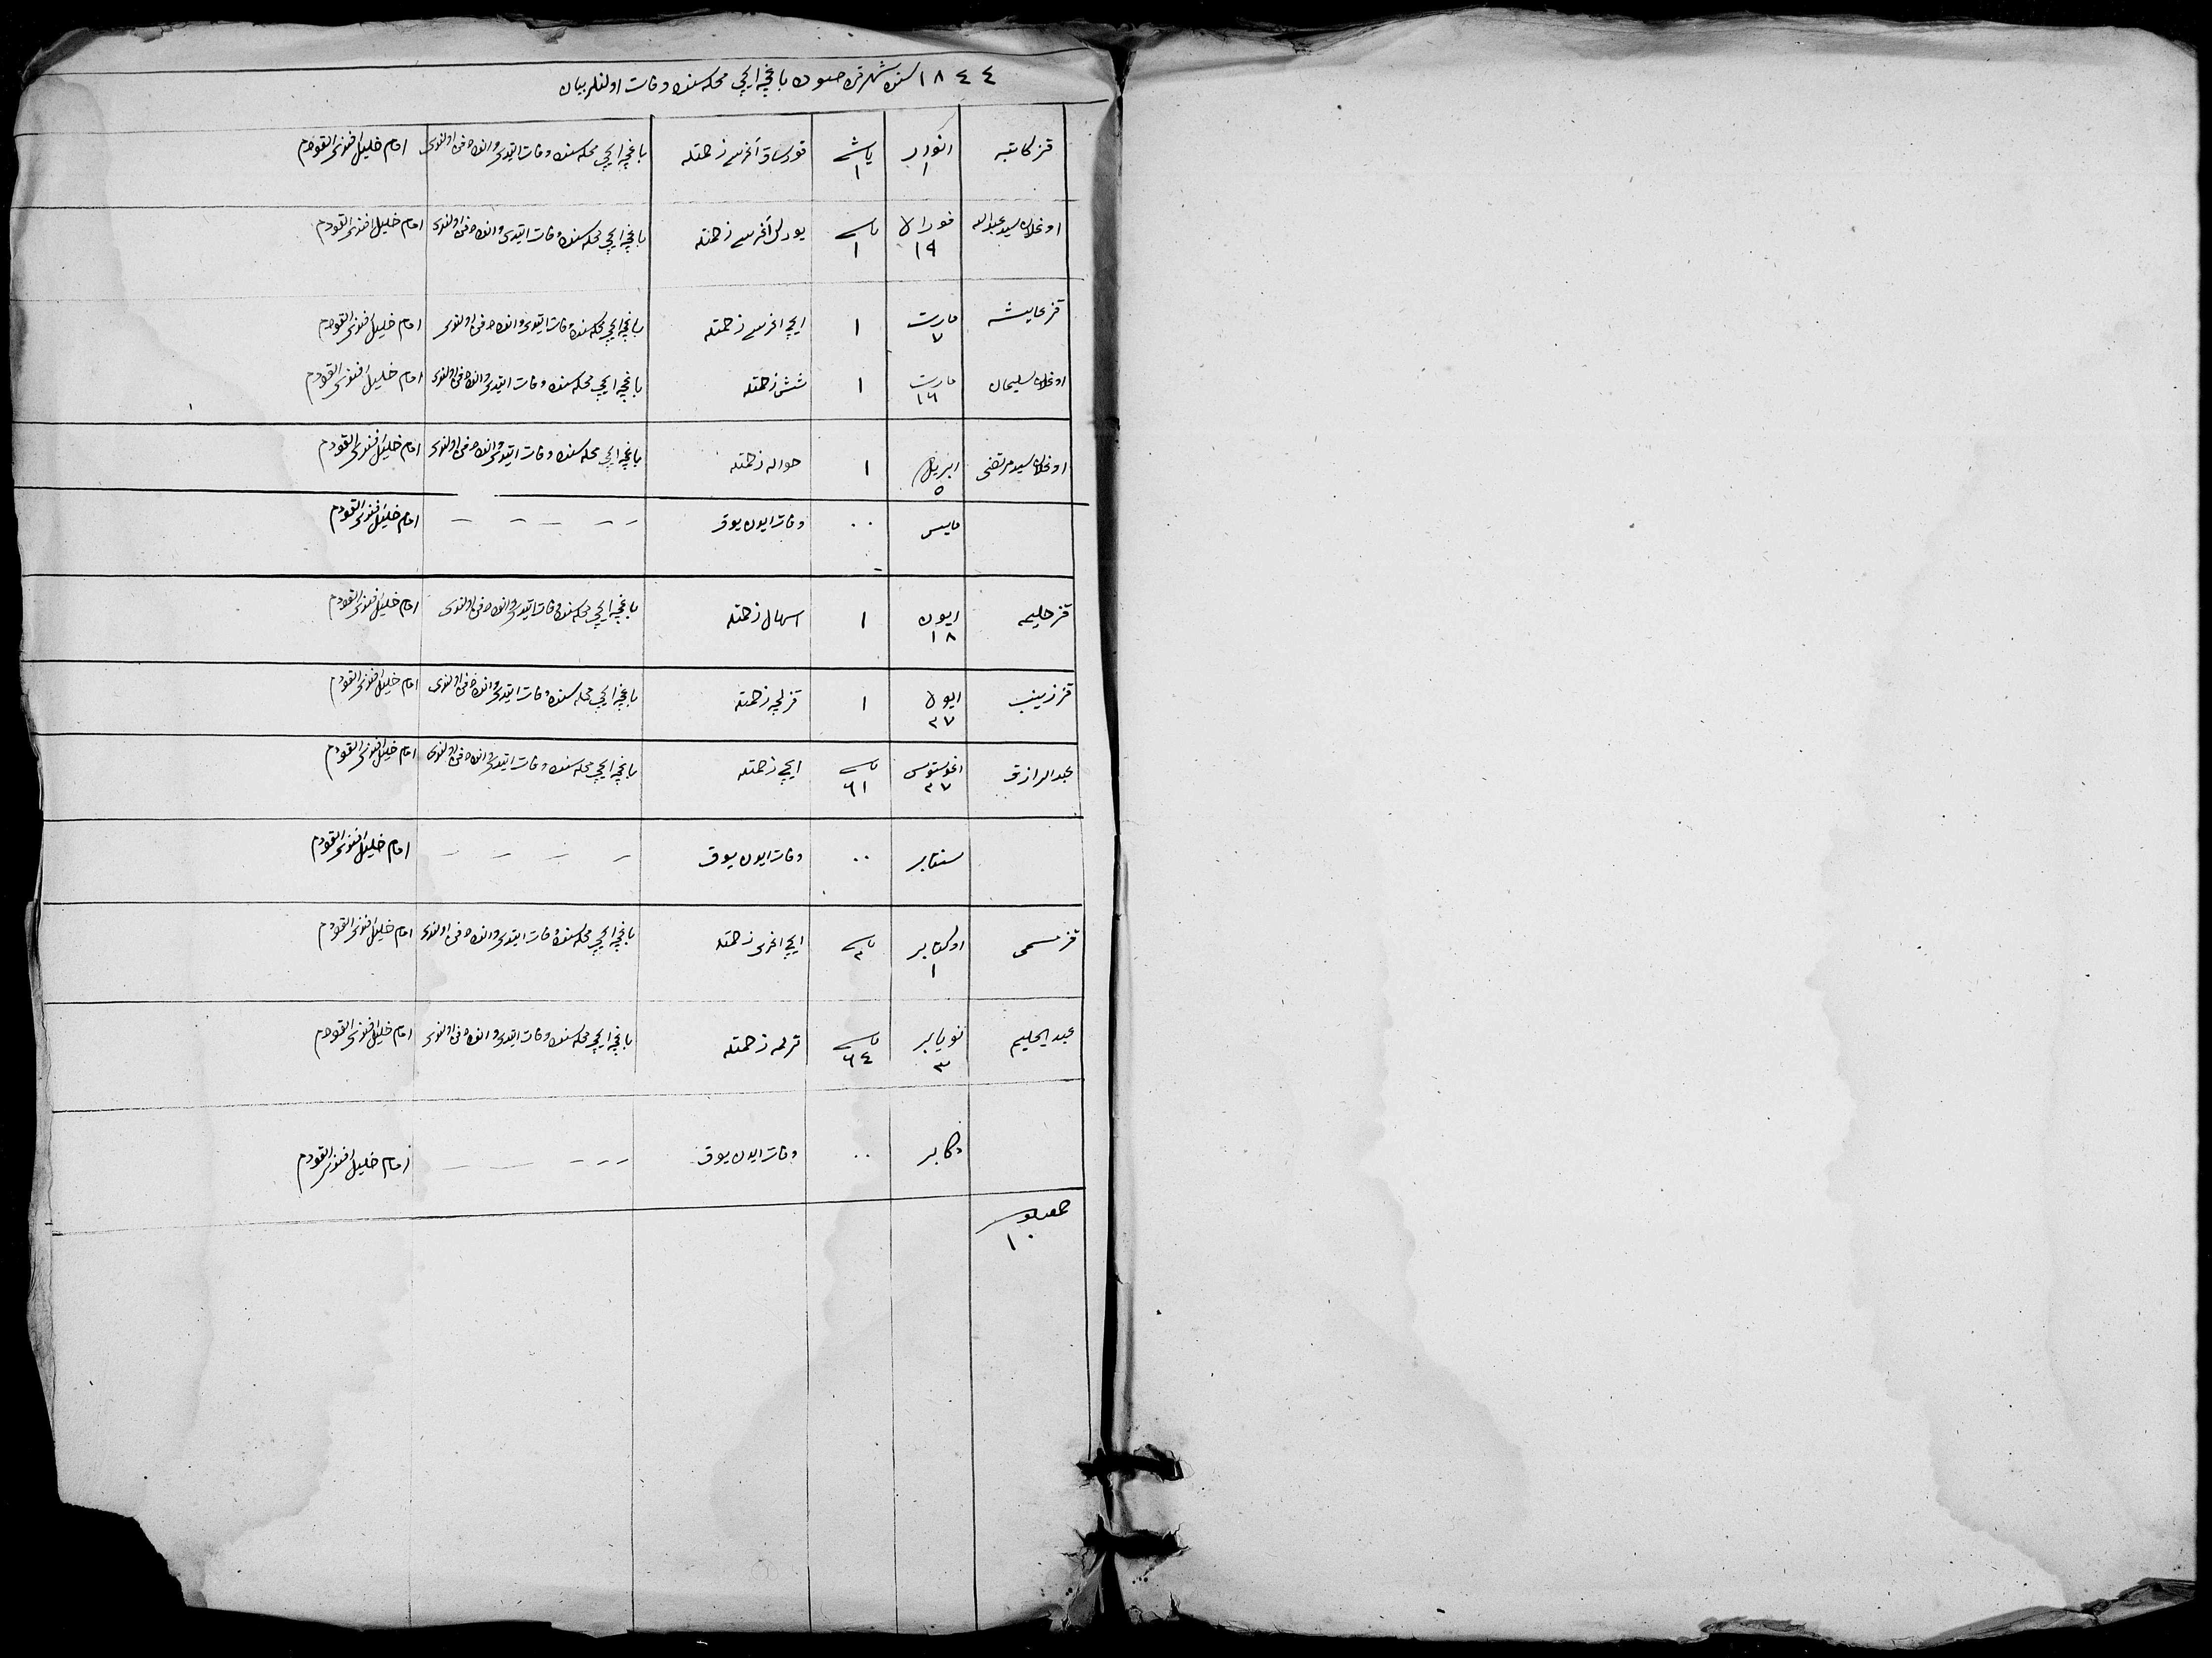 ١٨٤٤ سنه شهر قره صوده باغچه ایچی محله سنده وفات اولنلر بیان
قز کاتبه انوار ١ یاشی ١ قورساق آغرسی زحمتله باغچه ایچی محله سنده وفات ایتدی و انده دفن اولندی امام خلیل افندی القودم
اوغلان سید عبدالله فورال ١٩ یاشی ١ یورك آغرسی زحمتله باغچه ایچی محله سنده وفات ایتدی و انده دفن اولندی امام خلیل افندی القودم
قز عایشه مارت ٧ ١ ایچ اغرسی زحمتله باغچه ایچی محله سنده وفات ایتدی و انده دفن اولندی امام خلیل افندی القودم
اوغلان سلیمان مارت ١٦ ١ شش زحمتله باغچه ایچی محله سنده وفات ایتدی و انده دفن اولندی امام خلیل افندی القودم
اوغلان سید مرتضی ابریل ٥ ١ حواله زحمتله باغچه ایچی محله سنده وفات ایتدی و انده دفن اولندی امام خلیل افندی القودم
مایس ٠٠ وفات ایدن یوق امام خلیل افندی القودم
قز حلیمه ایون ١٨ ١ اسهال زحمتله باغچه ایچی محله سنده وفات ایتدی و انده دفن اولندی امام خلیل افندی القودم
قز زینب ایول ٢٧ ١ قزلجه زحمتله باغچه ایچی محله سنده وفات ایتدی و انده دفن اولندی امام خلیل افندی القودم
عبد الرازق اغوستوس ٢٧ یاشی ٦١ ایچ زحمتله باغچه ایچی محله سنده وفات ایتدی و انده دفن اولندی امام خلیل افندی القودم
سنتابر ٠٠ وفات ایدن یوق امام خلیل افندی القودم
قز اوکتابر ١ یاشی ٢ ایچ اغری زحمتله باغچه ایچی محله سنده وفات ایتدی و انده دفن اولندی امام خلیل افندی القودم
عبد الحلیم نویابر ٣ یاشی ٦٤ ترلمه زحمتله باغچه ایچی محله سنده وفات ایتدی و انده دفن اولندی امام خلیل افندی القودم
دکابر ٠٠ وفات ایدن یوق امام خلیل افندی القودم
١٠